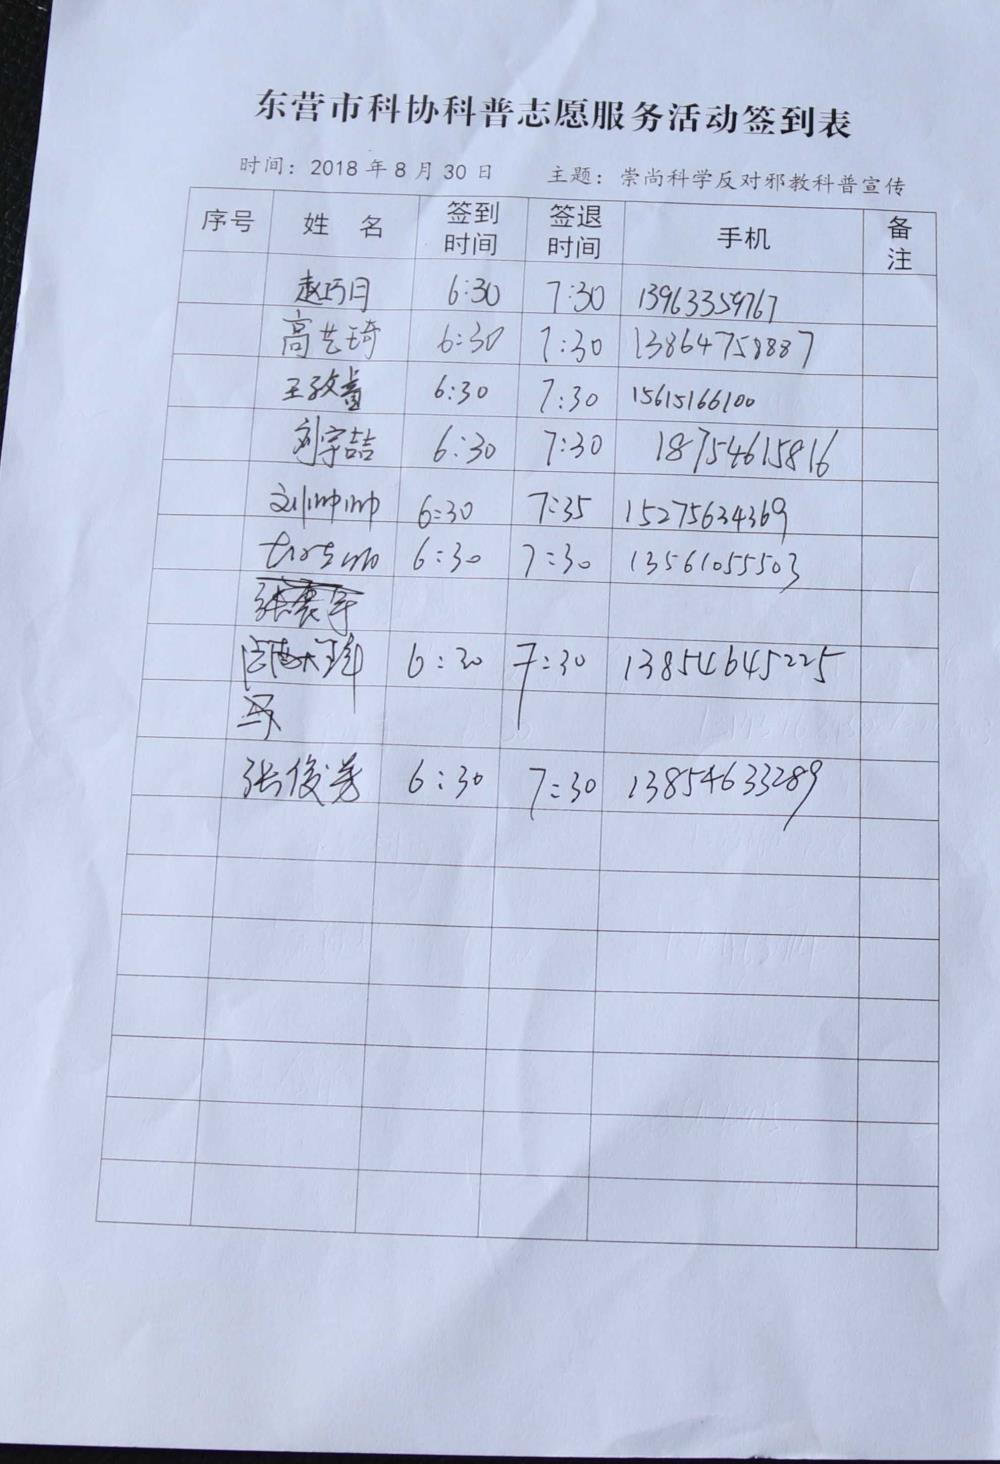 东营市科协科普志愿服务活动签到表
时间：2018年8月30日 主题：崇尚科学反对邪教科普宣传
序号 姓名 签到时间 签退时间 手机 备注
赵巧月 6:30 7:30 13963359767
高艺琦 6:30 7:30 13864758887
王 6:30 7:30 15615166100
刘宇喆 6:30 7:30 18754615816
刘帅帅 6:30 7:35 15275634369
6:30 7:30 13561055503
张震宇
6:30 7:30 13854645225
张俊芳 6:30 7:30 13854633289